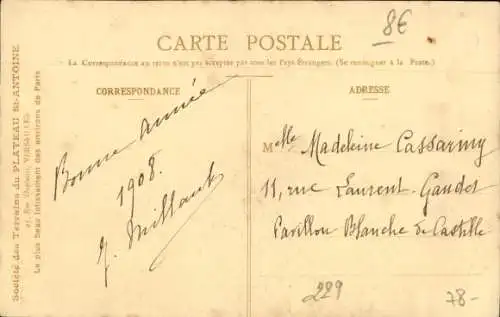 8€
CARTE POSTALE
La Correspondance au recto n'est pas acceptée par tous les Pays Étrangers. (Se renseigner à la Poste.)
CORRESPONDANCE
ADRESSE
Bonne année
1908.
Millault
Melle Madeleine Cassariny
11, rue Laurent-Gaudet
Pavillon Blanche de Castille
229
78-
Société des Terrains du PLATEAU St-ANTOINE
VERSAILLES
Le plus beau lotissement des environs de Paris